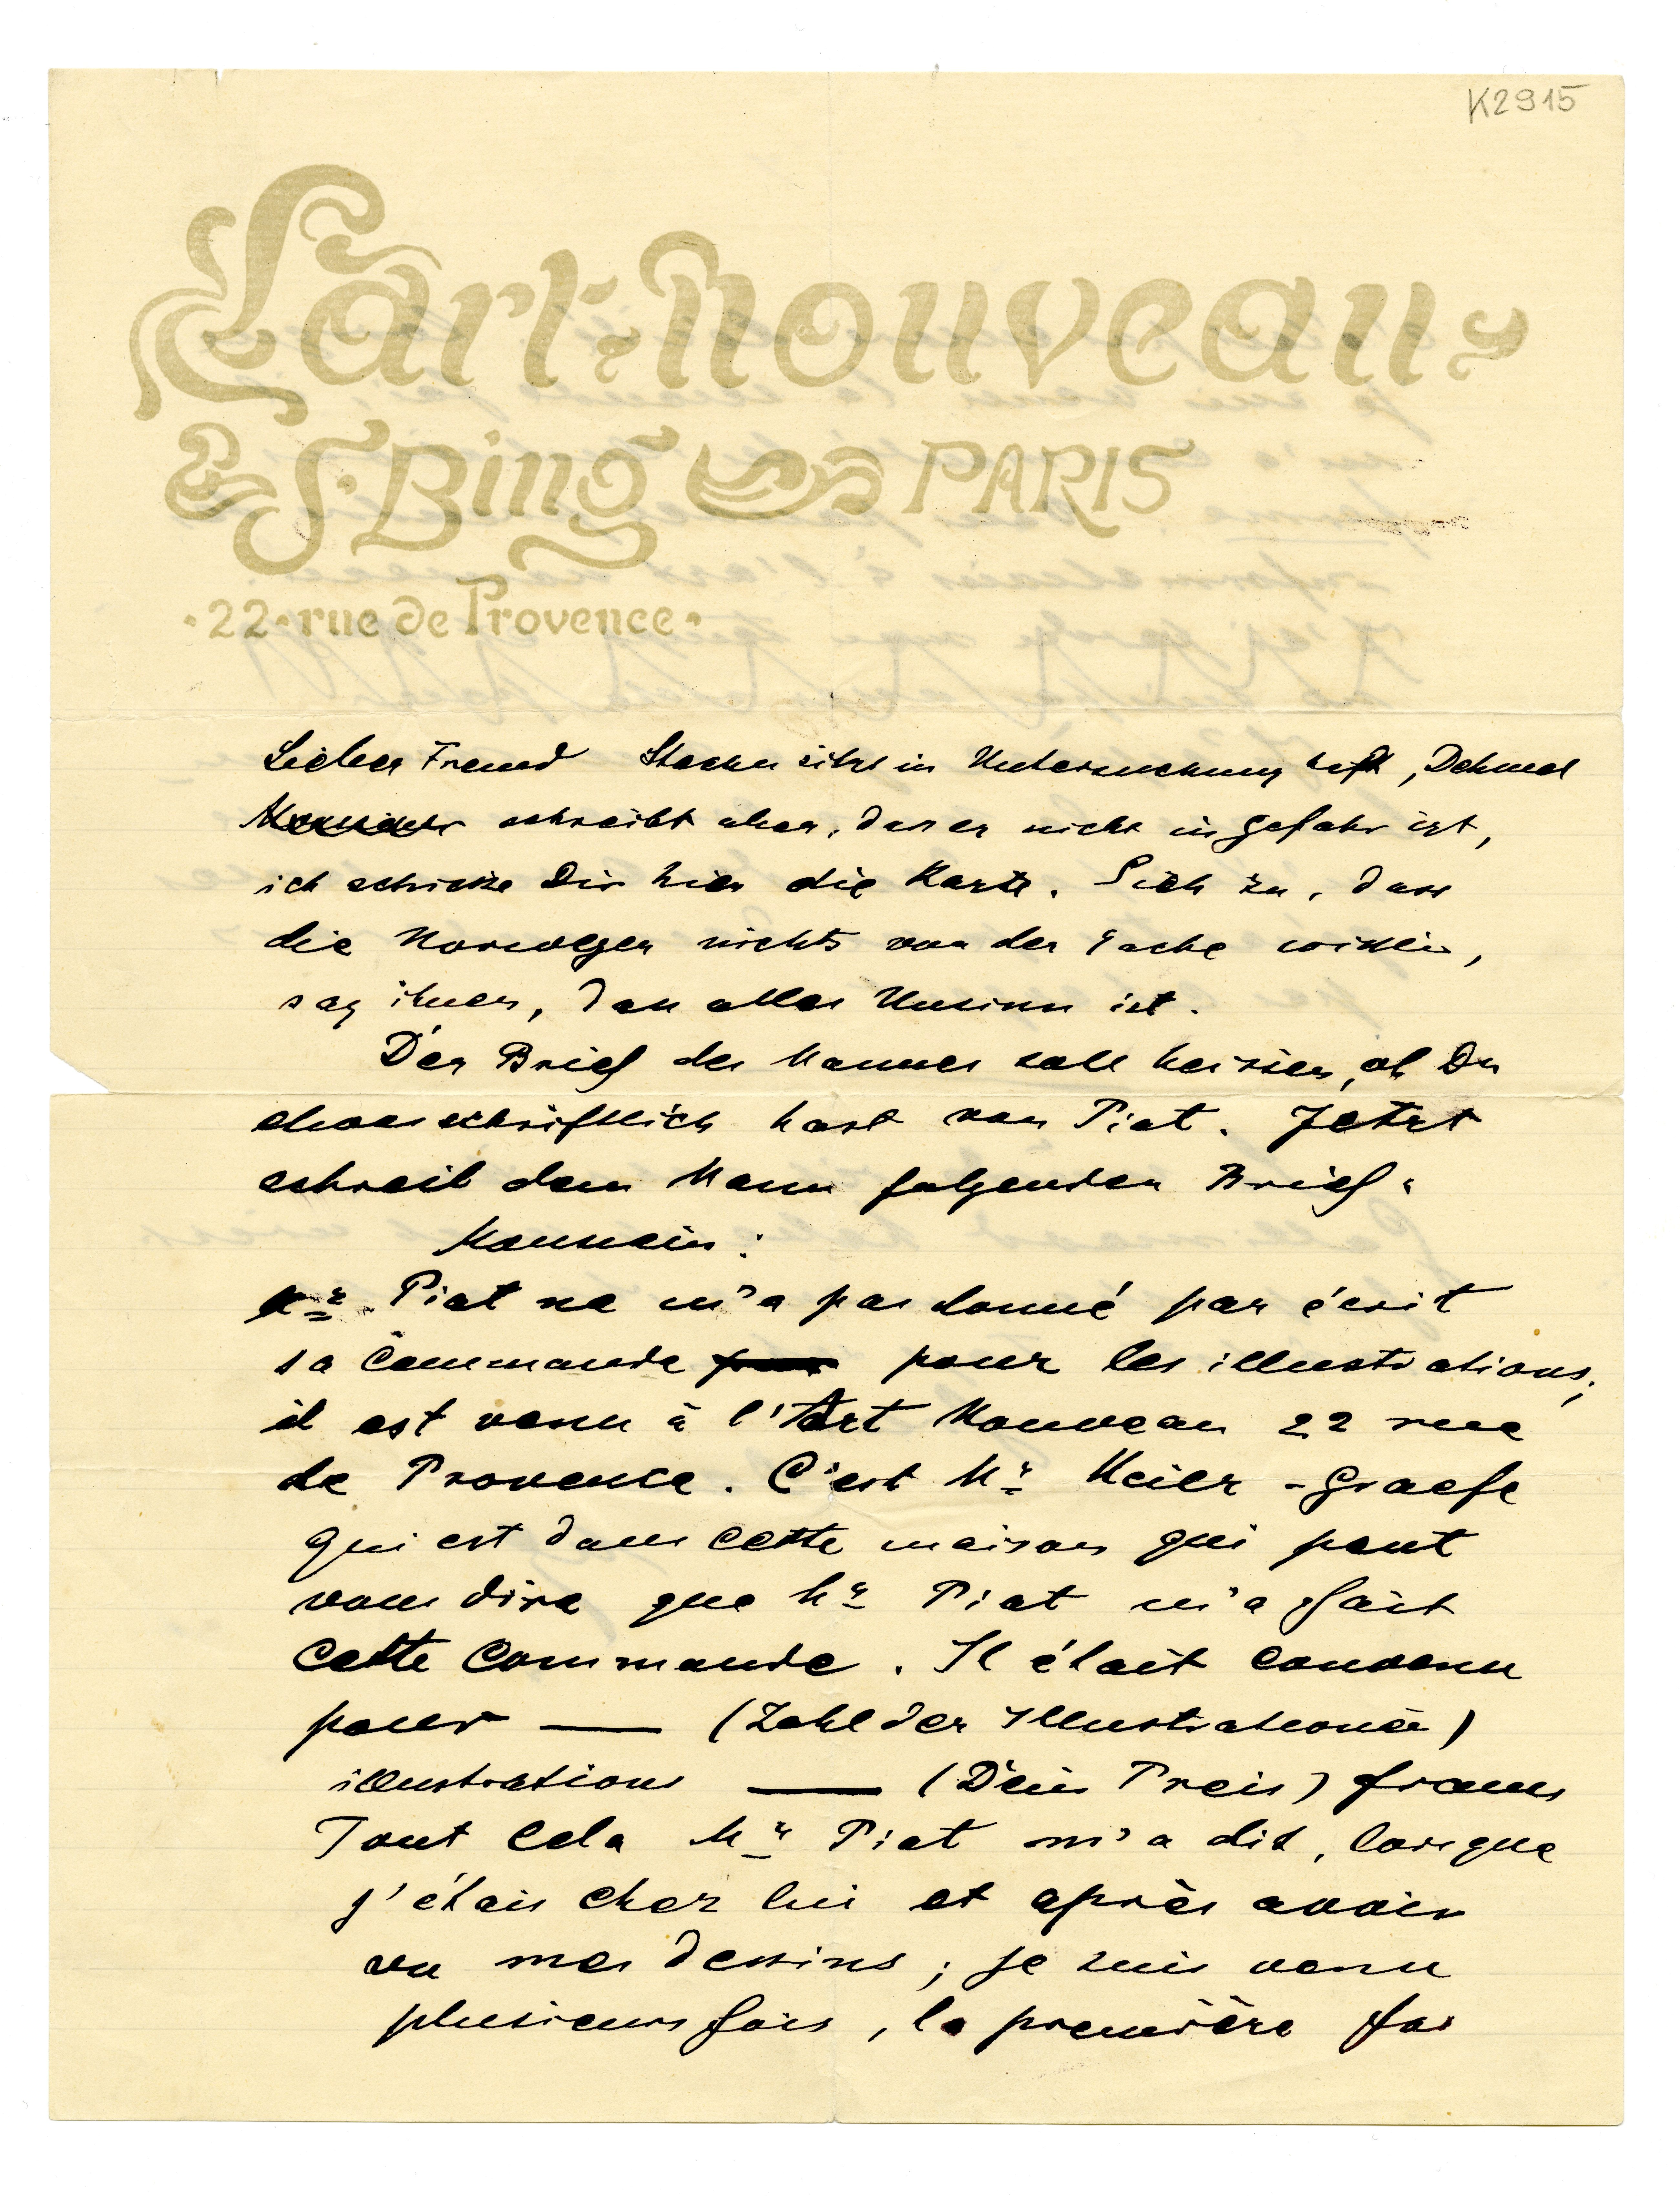 K2915
L'art·nouveau
S·Bing PARIS
·22·rue de Provence·
Lieber Freund Stachu sitzt in Untersuchunghaft, Dehmel
schreibt aber, dass er nicht in Gefahr ist,
ich schicke Dir hier die Karte. Sieh zu, dass
die Norweger nichts von der Sache wissen,
sag ihnen, dass alles Unsinn ist.
Der Brief des Mannes soll heissen, ob Du
etwas schriftlich hast von Piat. Jetzt
schreib dem Mann folgenden Brief.
Monsieur:
Mr. Piat ne m'a pas donné par écrit
sa commande pour les illustrations;
il est venu à l'Art Nouveau 22 rue
de Provence. C'est Mr Meier-Graefe
qui est dans cette maison qui peut
vous dire que Mr Piat m'a fait
cette commande. Il était convenu
pour — (Zahl der Illustrationen)
illustrations — (Dein Preis) francs
Tout cela Mr Piat m'a dit, lorsque
j'étais chez lui et après avoir
vu mes dessins; je suis venu
plusieurs fois, la première foi